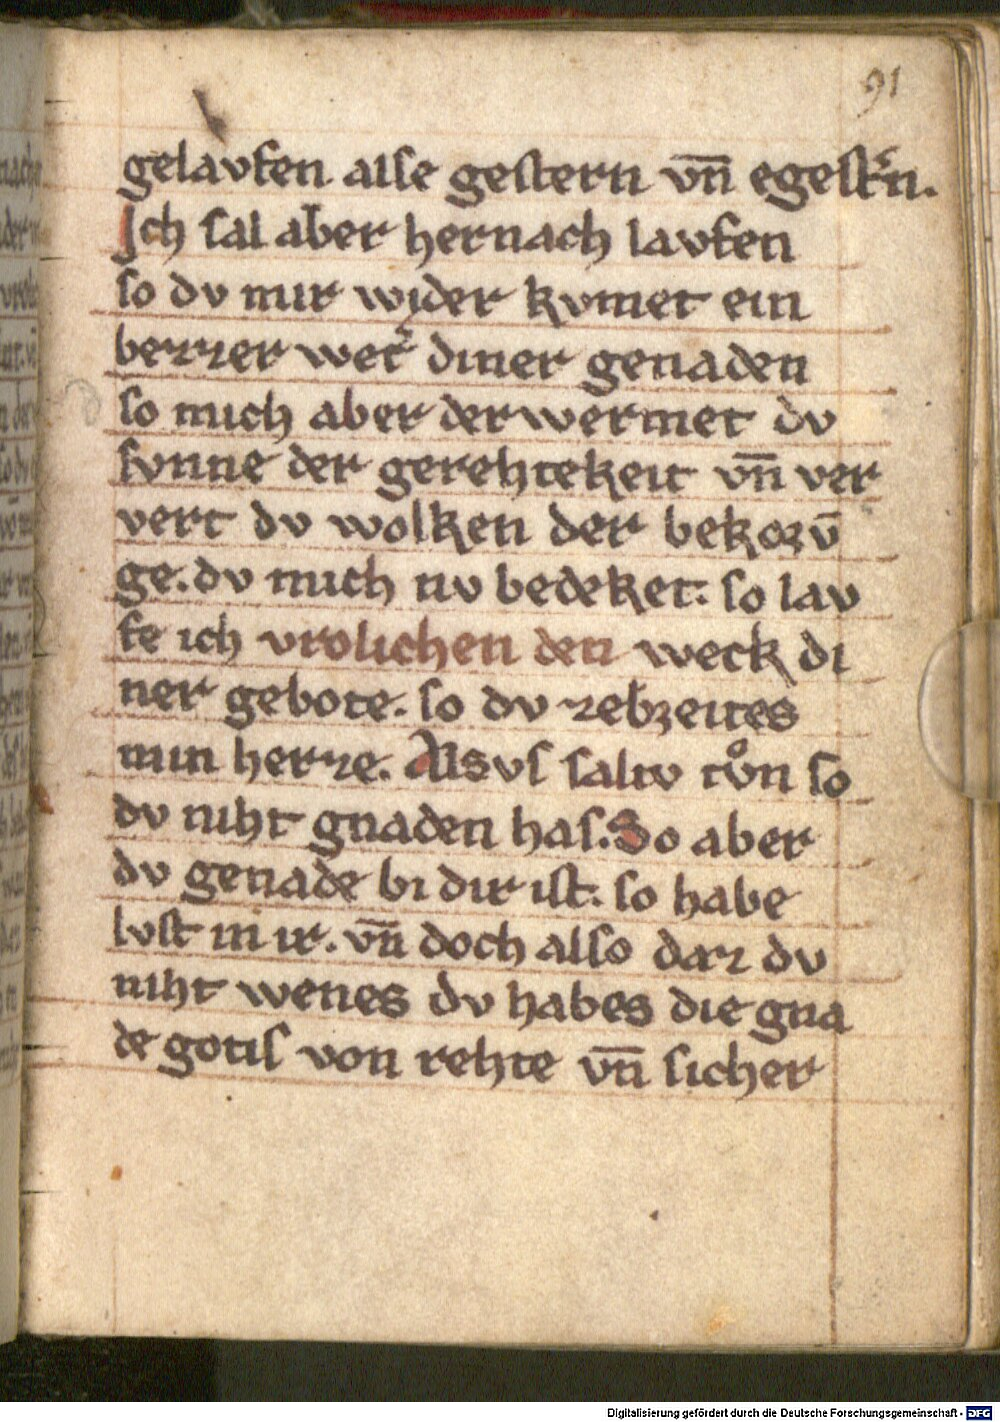 91
gelavfen alse gestern vn̄ egest͛n.
Ich sal aber hernach lavfen
so dv mir wider kvmet ein
bezzer wet͛ diner genaden
so mich aber derwermet dv
svnne der gerehtekeit vn̄ ver
vert dv wolken der bekorv̄
ge. dv mich nv bedeket. so lav
fe ich vrolichen den weck di
ner gebote. so dv zebreites
min herze. Alsvs saltv tvͦn so
dv niht gnaden has. So aber
dv genade bi dir ist. so habe
lvst in ir. vn̄ doch also daz dv
niht wenes dv habes die gna
de gotis von rehte vn̄ sicher
Digitalisierung gefördert durch die Deutsche Forschungsgemeinschaft - DFG